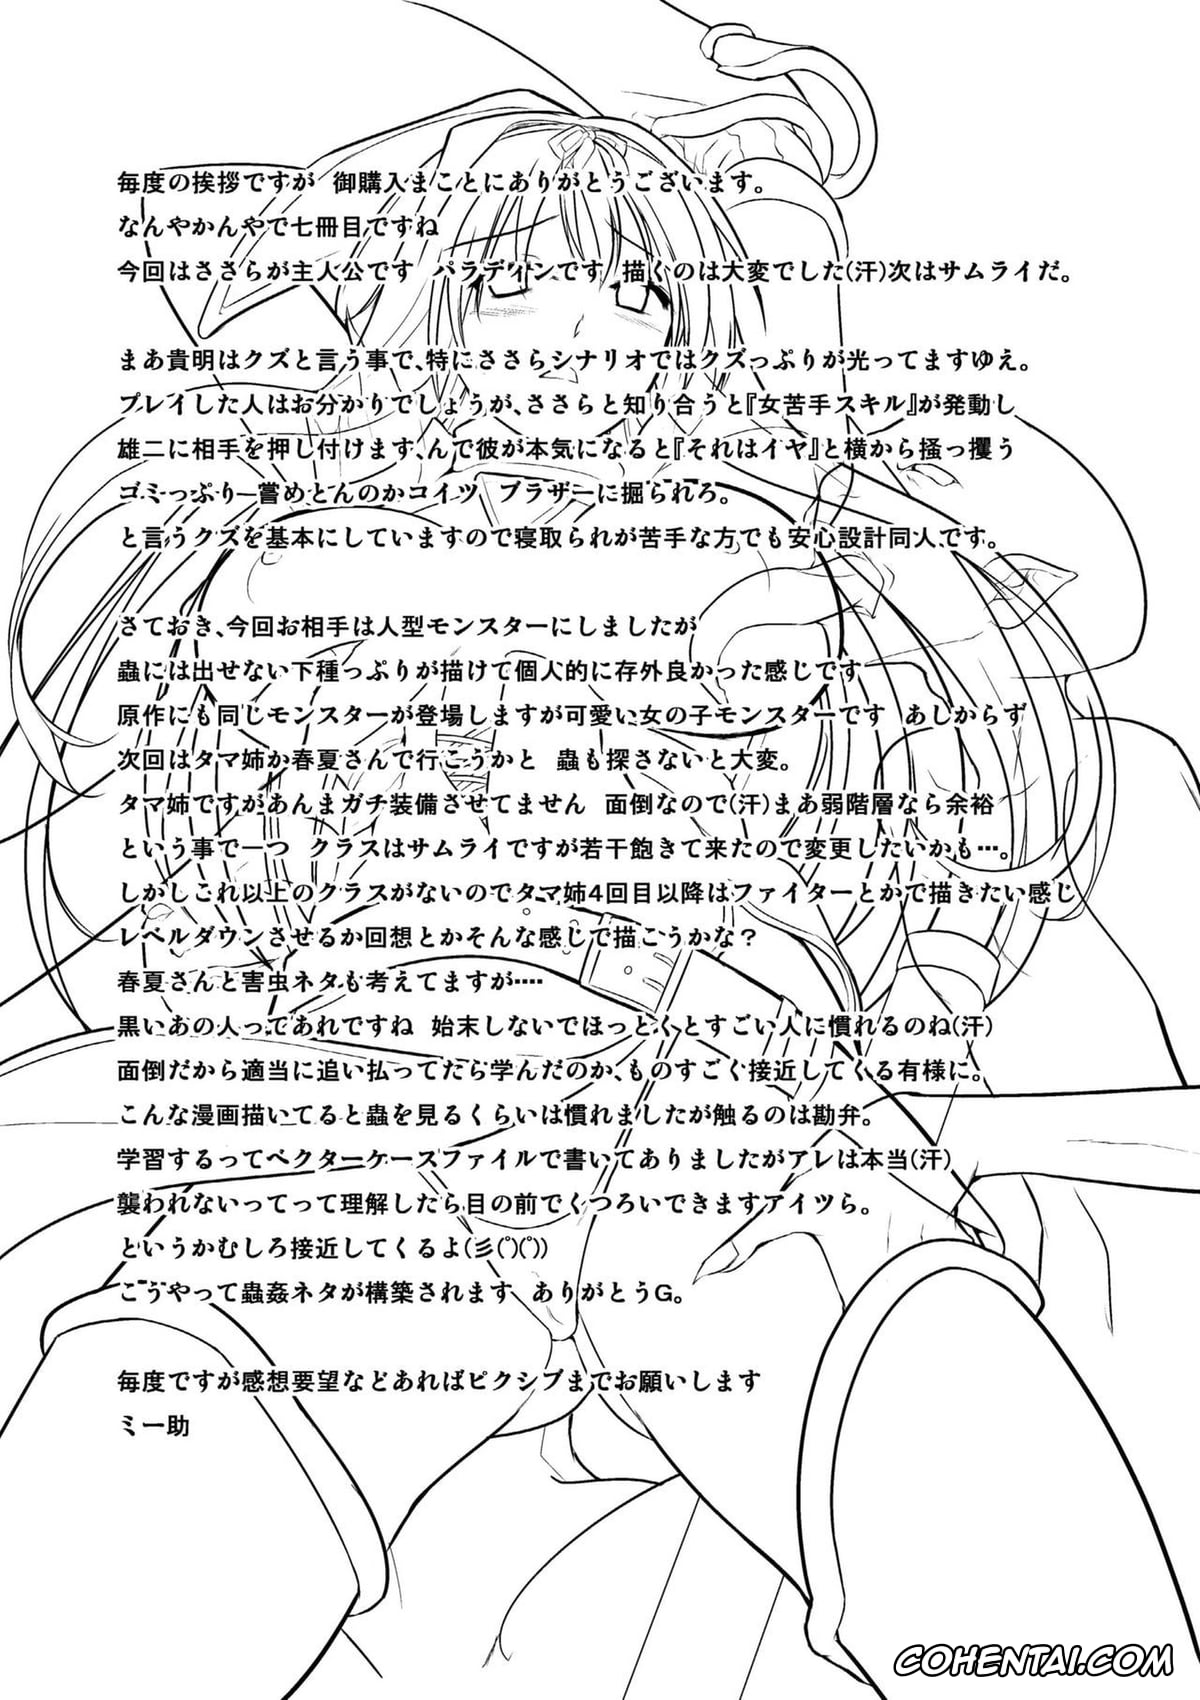 毎度の挨拶ですが　御購入まことにありがとうございます。
なんやかんやで七冊目ですね
今回はささらが主人公です　パラディンです　描くのは大変でした(汗)次はサムライだ。
まあ貴明はクズと言う事で、特にささらシナリオではクズっぷりが光ってますゆえ。
プレイした人はお分かりでしょうが、ささらと知り合うと『女苦手スキル』が発動し
雄二に相手を押し付けます、んで彼が本気になると『それはイヤ』と横から掻っ攫う
ゴミっぷり―嘗めとんのかコイツ　ブラザーに掘られろ。
と言うクズを基本にしていますので寝取られが苦手な方でも安心設計同人です。
さておき、今回お相手は人型モンスターにしましたが
蟲には出せない下種っぷりが描けて個人的に存外良かった感じです
原作にも同じモンスターが登場しますが可愛い女の子モンスターです　あしからず
次回はタマ姉か春夏さんで行こうかと　蟲も探さないと大変。
タマ姉ですがあんまガチ装備させてません　面倒なので(汗)まあ弱階層なら余裕
という事で一つ　クラスはサムライですが若干飽きて来たので変更したいかも…。
しかしこれ以上のクラスがないのでタマ姉4回目以降はファイターとかで描きたい感じ
レベルダウンさせるか回想とかそんな感じで描こうかな?
春夏さんと害虫ネタも考えてますが‥‥
黒いあの人ってあれですね　始末しないでほっとくとすごい人に慣れるのね(汗)
面倒だから適当に追い払ってたら学んだのか、ものすごく接近してくる有様に。
こんな漫画描いてると蟲を見るくらいは慣れましたが触るのは勘弁。
学習するってベクターケースファイルで書いてありましたがアレは本当(汗)
襲われないってって理解したら目の前でくつろいできますアイツら。
というかむしろ接近してくるよ(彡(ﾟ)(ﾟ))
こうやって蟲姦ネタが構築されます　ありがとうG。
毎度ですが感想要望などあればピクシブまでお願いします
ミー助
COHENTAI.COM